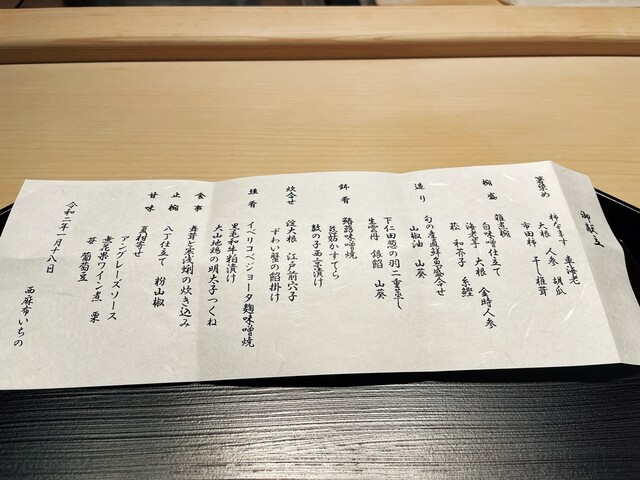 御献立
箸染め
柿なます 車海老
大根 人参 胡瓜
市田柿 干し椎茸
椀盛
雑煮椀
白味噌仕立て
海老芋 大根 金時人参
菘 和芥子 糸鰹
造り
旬の産直鮮魚盛合せ
山椒油 山葵
下仁田葱の羽二重蒸し
生雲丹 銀餡 山葵
鉢肴
味噌焼
慈姑かすてら
数の子西京漬け
炊合せ
淀大根 江戸前穴子
ずわい蟹の餡掛け
強肴
イベリコベジョータ麹味噌焼
黒毛和牛粕漬け
大山地鶏の明太子つくね
食事
舞茸と浅蜊の炊き込み
止椀
八丁仕立て 粉山椒
甘味
夏柑寄せ
アングレーズソース
無花果ワイン煮 栗
苺 葡萄豆
令和二年一月十八日
西麻布いちの